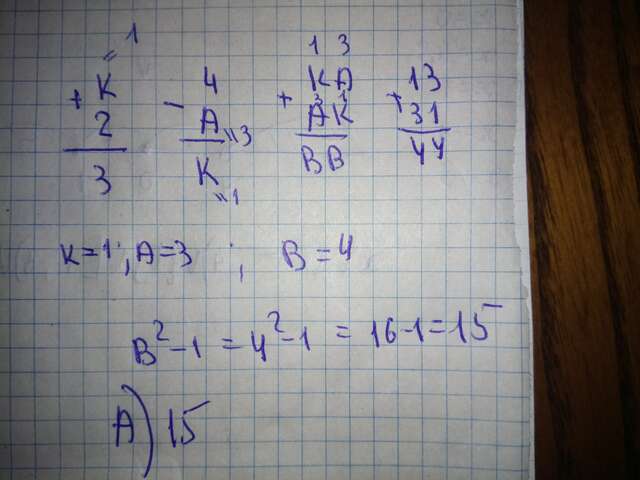 =1 1 3
+ K 4 KA 13
2 - A =3 + AK + 31
3 K =1 BB 44
K=1; A=3 ; B=4
B²-1 = 4²-1 = 16-1=15
A) 15